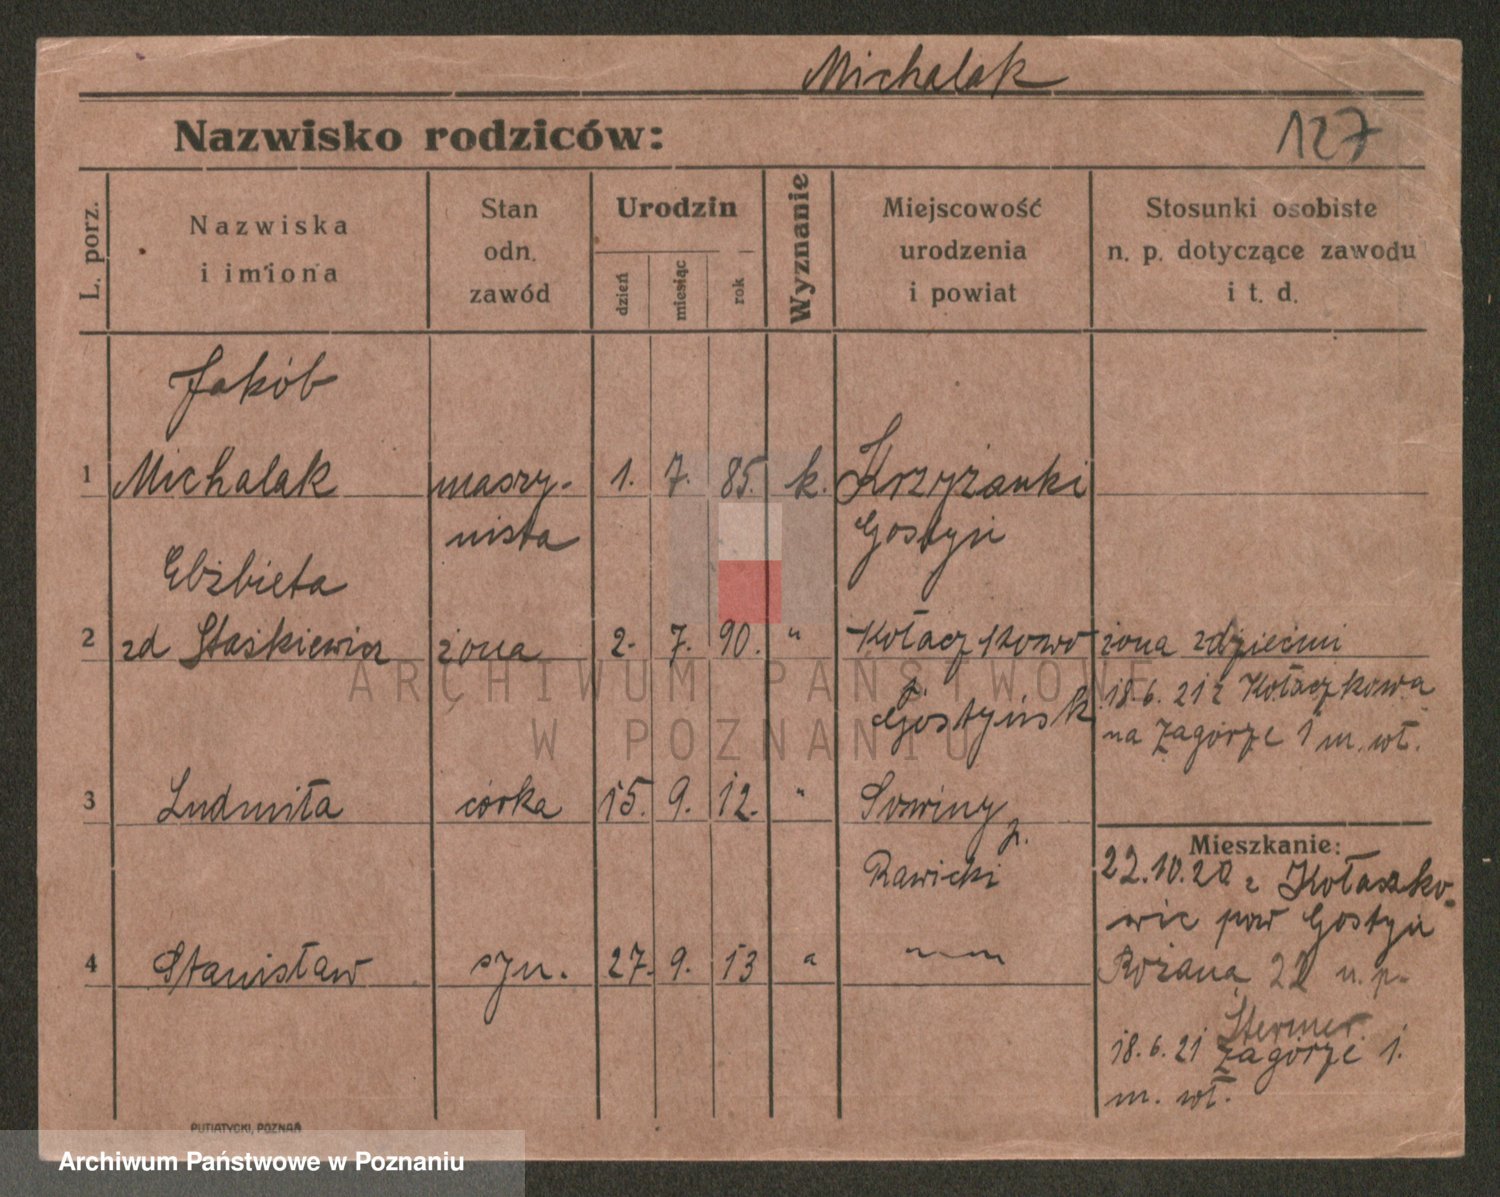 Michalak
Nazwisko rodziców:
127
L. porz.
Nazwiska
i imiona
Stan
odn.
zawód
Urodzin
dzień
miesiąc
rok
Wyznanie
Miejscowość
urodzenia
i powiat
Stosunki osobiste
n. p. dotyczące zawodu
i t. d.
Jakób
1 Michalak maszy- 1. 7. 85. k. Krzyżanki
nista Gostyń
Elżbieta
2 zd Staśkiewicz żona 2. 7. 90. " Kołaczkowo żona z dziećmi
18.6.21 z Kołaczkowa
Gostyńsk
na Zagórze 1 m. wł.
3 Ludmiła córka 15. 9. 12. "
p.
Rawicki
Mieszkanie:
22.10.20 z Kołaczko-
wic pow Gostyń
4 Stanisław syn. 27. 9. 13 "
Różana 22 u. p.
18.6.21 Zagórze 1.
m. wł.
PUTIATYCKI, POZNAŃ
ARCHIWUM PAŃSTWOWE
W POZNANIU
Archiwum Państwowe w Poznaniu